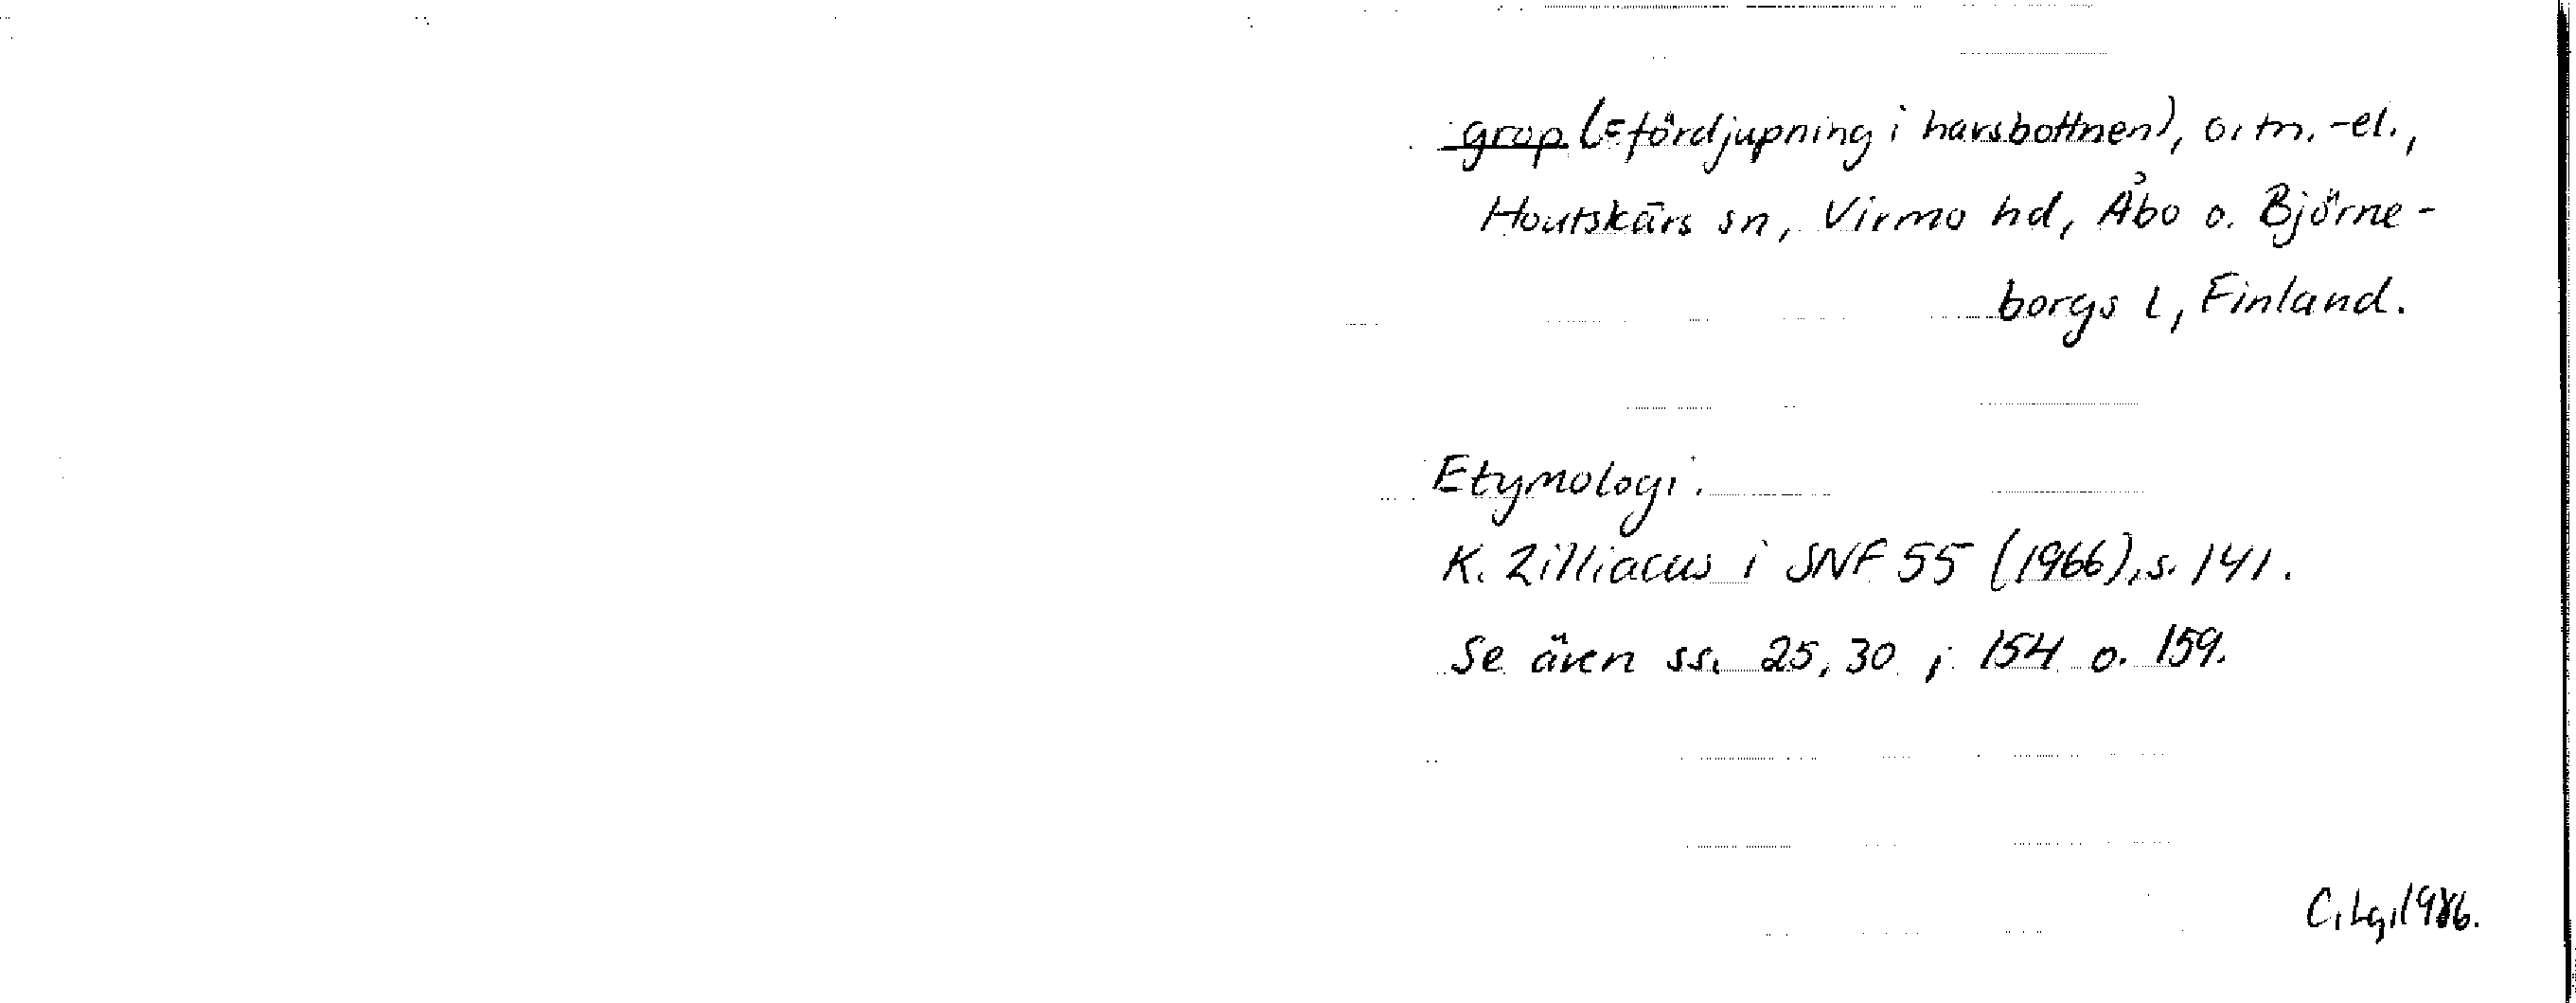 grop (= fördjupning i havsbottnen), o. tn. -el.,
Houtskärs sn, Virmo hd, Åbo o. Björne-
borgs l, Finland.
Etymologi.
K. Zilliacus i SNF 55 (1966), s. 141.
Se även ss. 25, 30, 154 o. 159.
C. Lg, 1986.